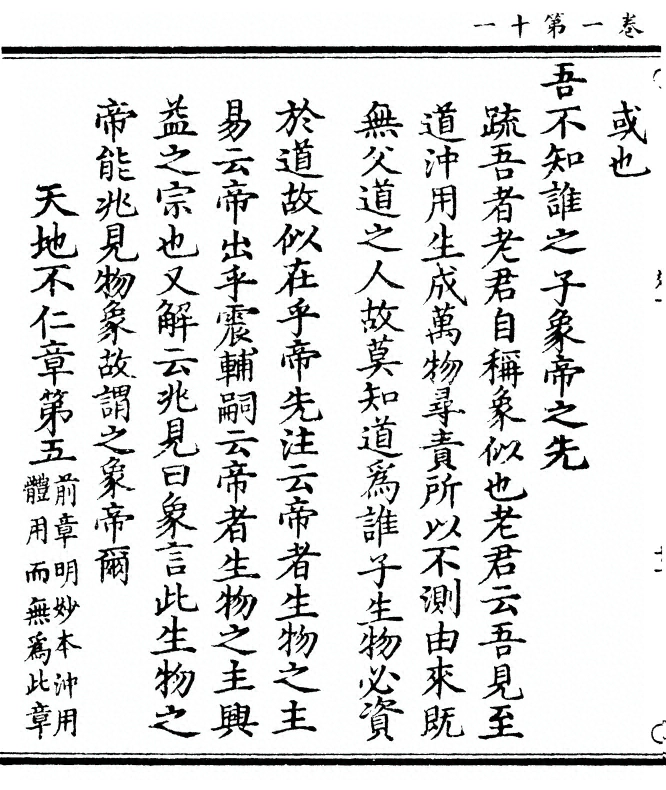 卷一第十一
或也
吾不知誰之子象帝之先
疏吾者老君自稱象似也老君云吾見至
道沖用生成萬物尋責所以不測由來既
無父道之人故莫知道爲誰子生物必資
於道故似在乎帝先注云帝者生物之主
易云帝出乎震輔嗣云帝者生物之主興
益之宗也又解云兆見曰象言此生物之
帝能兆見物象故謂之象帝爾
天地不仁章第五前章明妙本沖用
體用而無爲此章